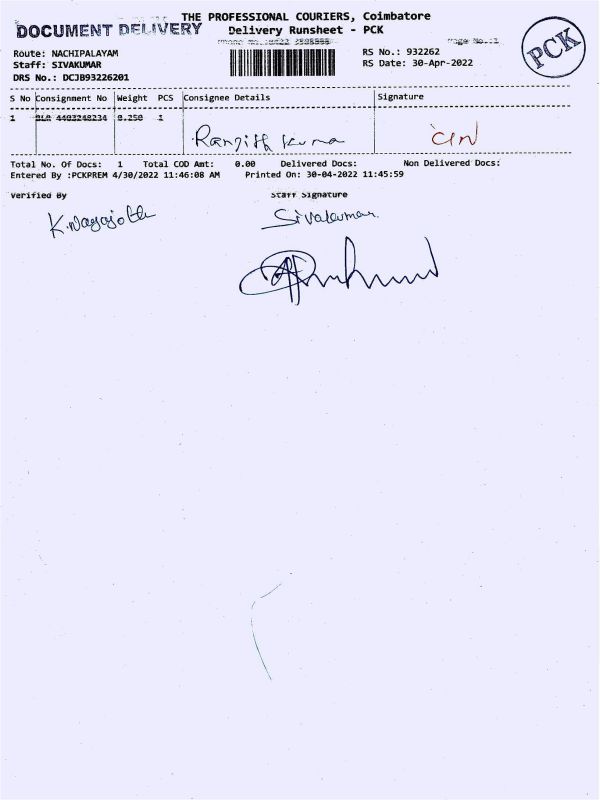 THE PROFESSIONAL COURIERS, Coimbatore
DOCUMENT DELIVERY
Delivery Runsheet - PCK
PCK
Route: NACHIPALAYAM
RS No.: 932262
Staff: SIVAKUMAR
RS Date: 30-Apr-2022
DRS No.: DCJB93226201
S No Consignment No Weight PCS Consignee Details Signature
1 4403248234 0.250 1
Ranjith Kuma
Total No. Of Docs: 1 Total COD Amt: 0.00 Delivered Docs: Non Delivered Docs:
Entered By :PCKPREM 4/30/2022 11:46:08 AM Printed On: 30-04-2022 11:45:59
Verified By Staff Signature
Sivakumar